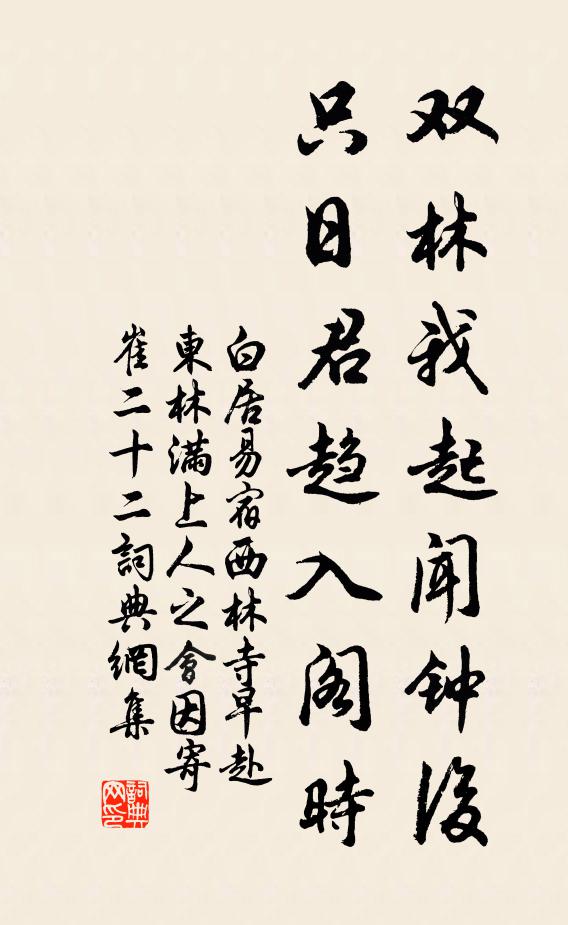 双林我起闻钟後
只日君趋入阁時
白居易宿西林寺早赴
東林滿上人之會因寄
崔二十二詞典網集
詞典
网印